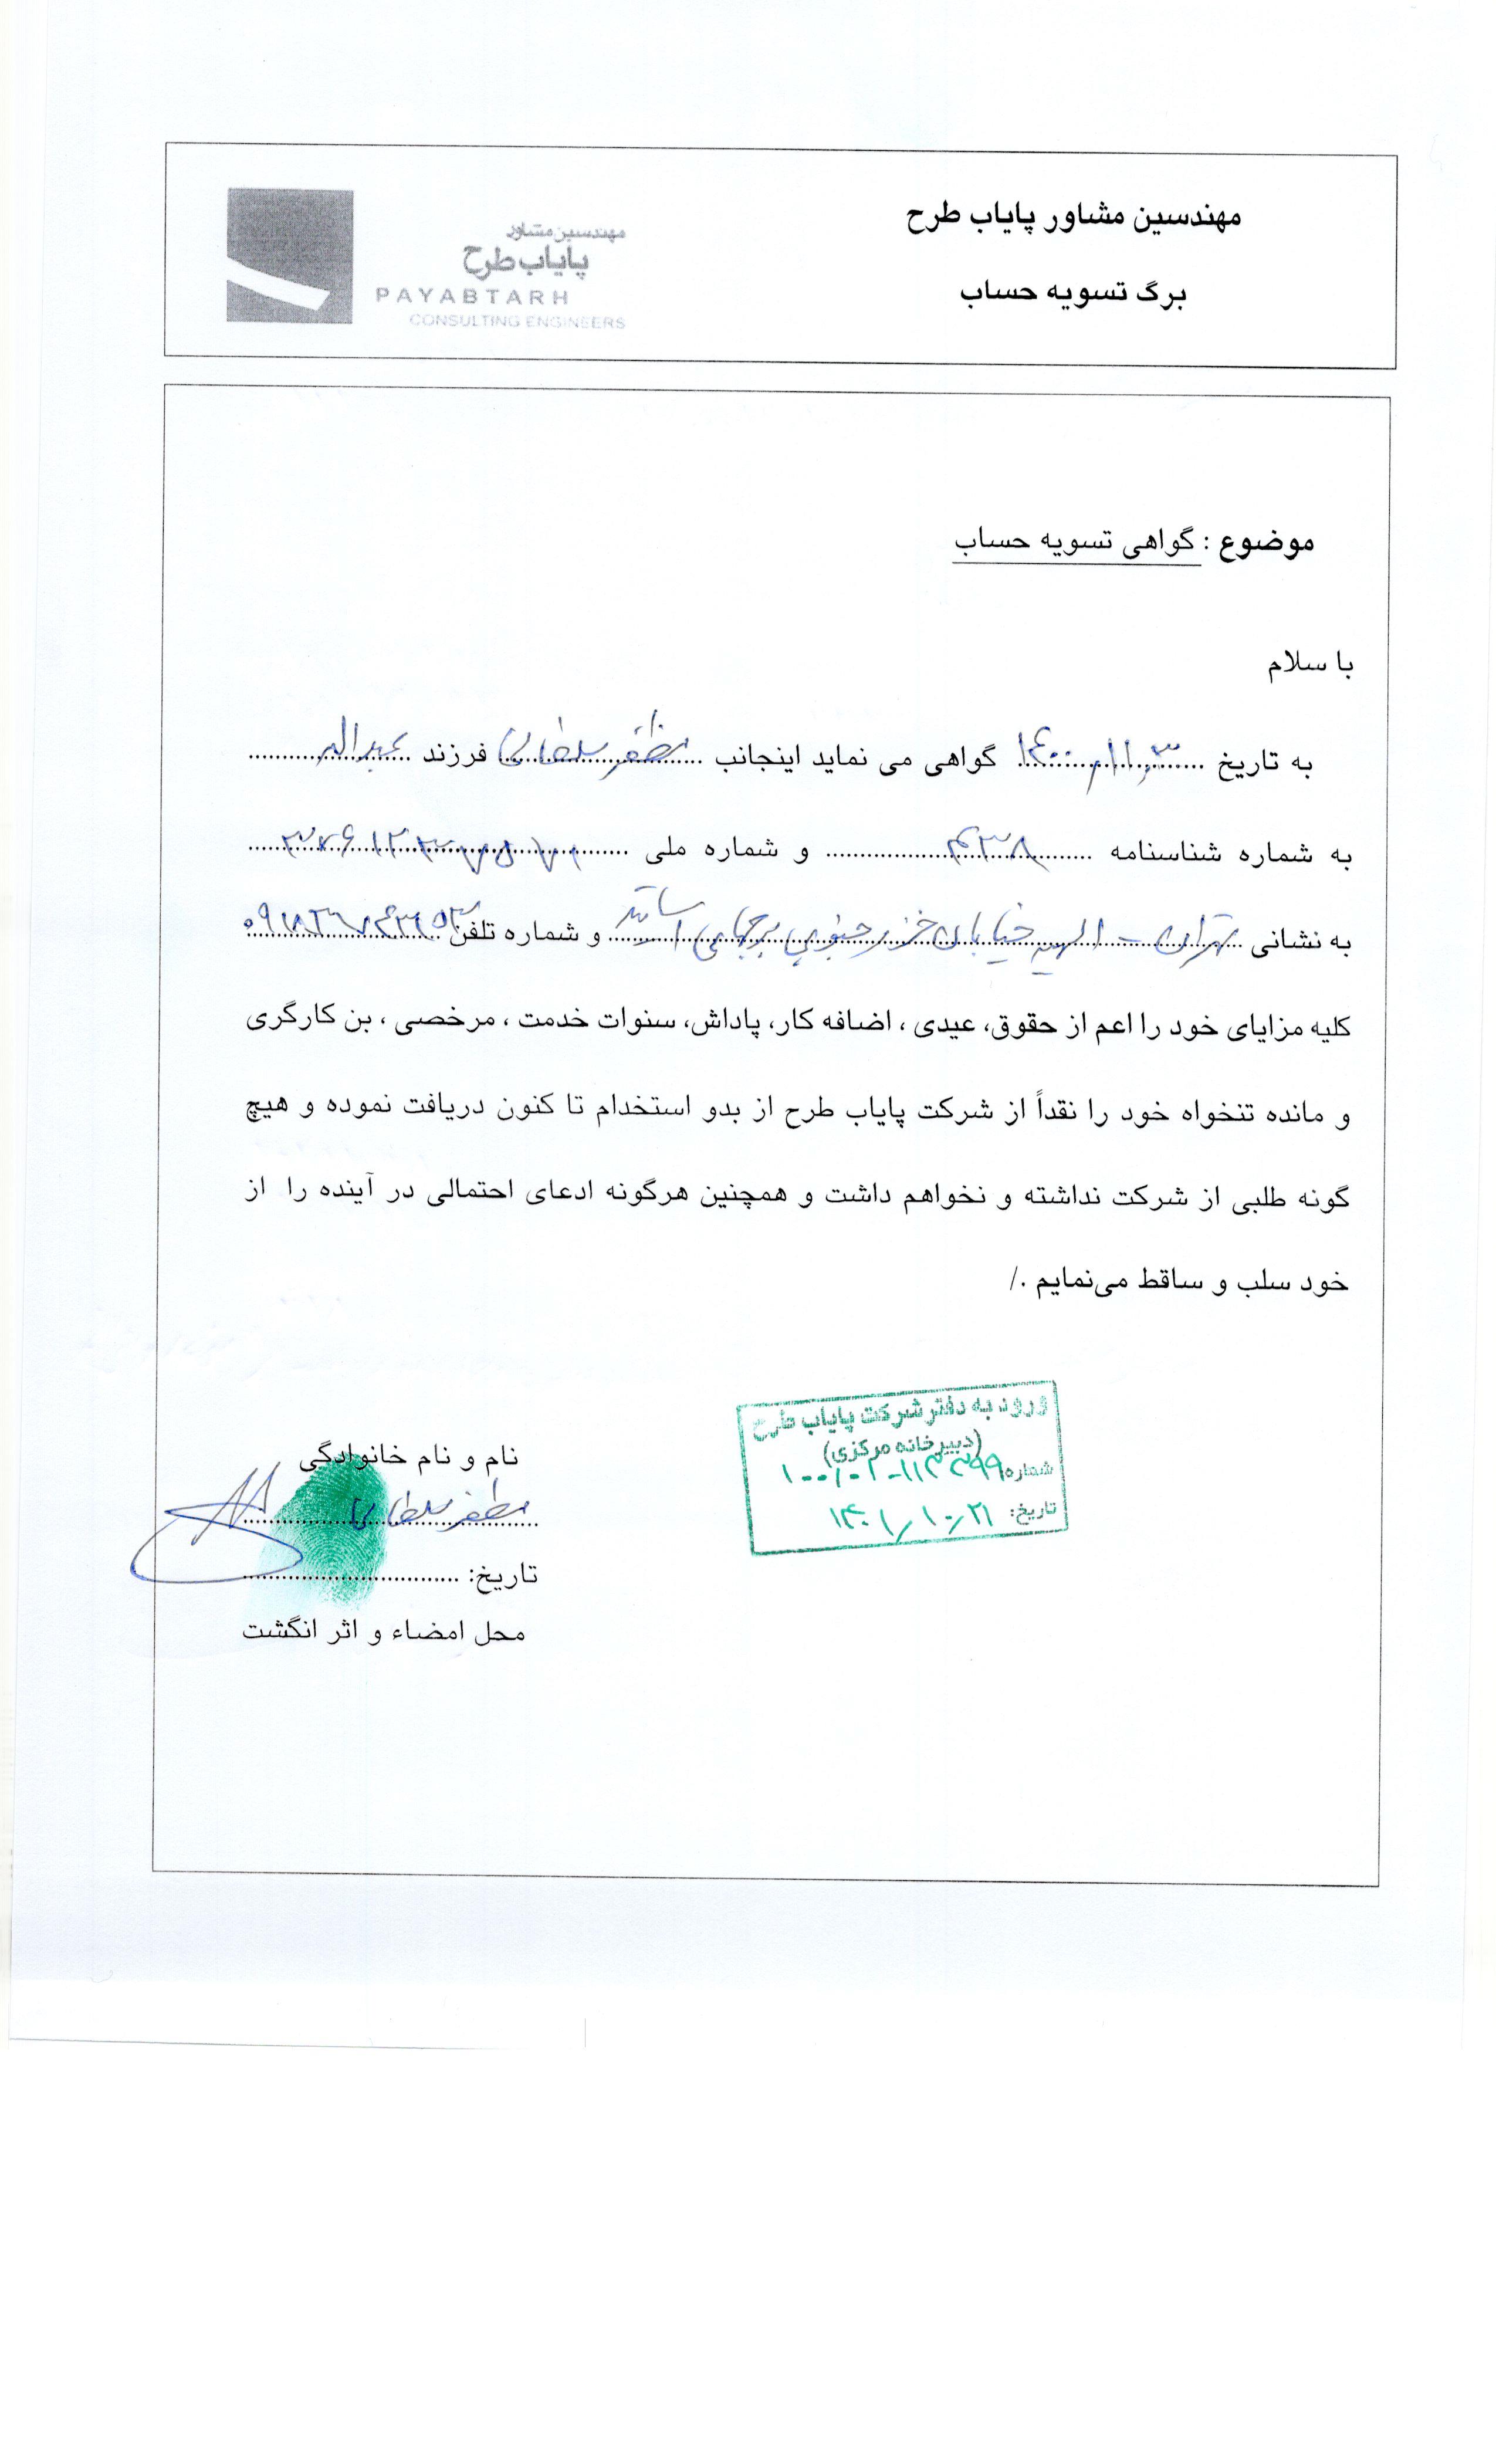 مهندسین مشاور پایاب طرح
برگ تسویه حساب
مهندسین مشاور
پایاب طرح
PAYABTARH
CONSULTING ENGINEERS
موضوع : گواهی تسویه حساب
با سلام
به تاریخ ۱۴۰۰/۱۱/۳۰ گواهی می نماید اینجانب مظفر سلطانی فرزند
به شماره شناسنامه ۴۳۸ و شماره ملی
به نشانی تهران - الهیه خیابان خزر جنوبی برجهای آساتید و شماره تلفن
کلیه مزایای خود را اعم از حقوق، عیدی ، اضافه کار، پاداش، سنوات خدمت ، مرخصی ، بن کارگری
و مانده تنخواه خود را نقداً از شرکت پایاب طرح از بدو استخدام تا کنون دریافت نموده و هیچ
گونه طلبی از شرکت نداشته و نخواهم داشت و همچنین هرگونه ادعای احتمالی در آینده را از
خود سلب و ساقط می‌نمایم ./
ورود به دفتر شرکت پایاب طرح
(دبیرخانه مرکزی)
شماره:
تاریخ: ۱۴۰۱/۱۰/۲۱
نام و نام خانوادگی
مظفر سلطانی
تاریخ:
محل امضاء و اثر انگشت